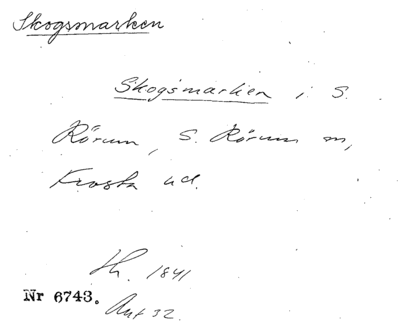 Skogsmarken
Skogsmarken i S.
Rörum, S. Rörum sn,
Frosta hd.
Lh. 1841
Nr 6743.
Akt 32.